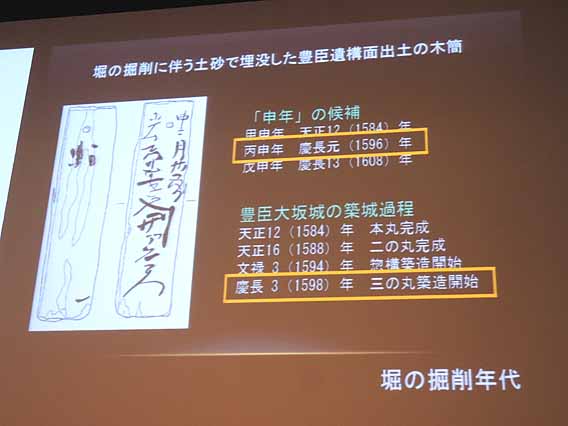 堀の掘削に伴う土砂で埋没した豊臣遺構面出土の木簡
「申年」の候補
甲申年 天正12(1584)年
丙申年 慶長元(1596)年
戊申年 慶長13(1608)年
豊臣大坂城の築城過程
天正12(1584)年 本丸完成
天正16(1588)年 二の丸完成
文禄 3(1594)年 惣構築造開始
慶長 3(1598)年 三の丸築造開始
堀の掘削年代